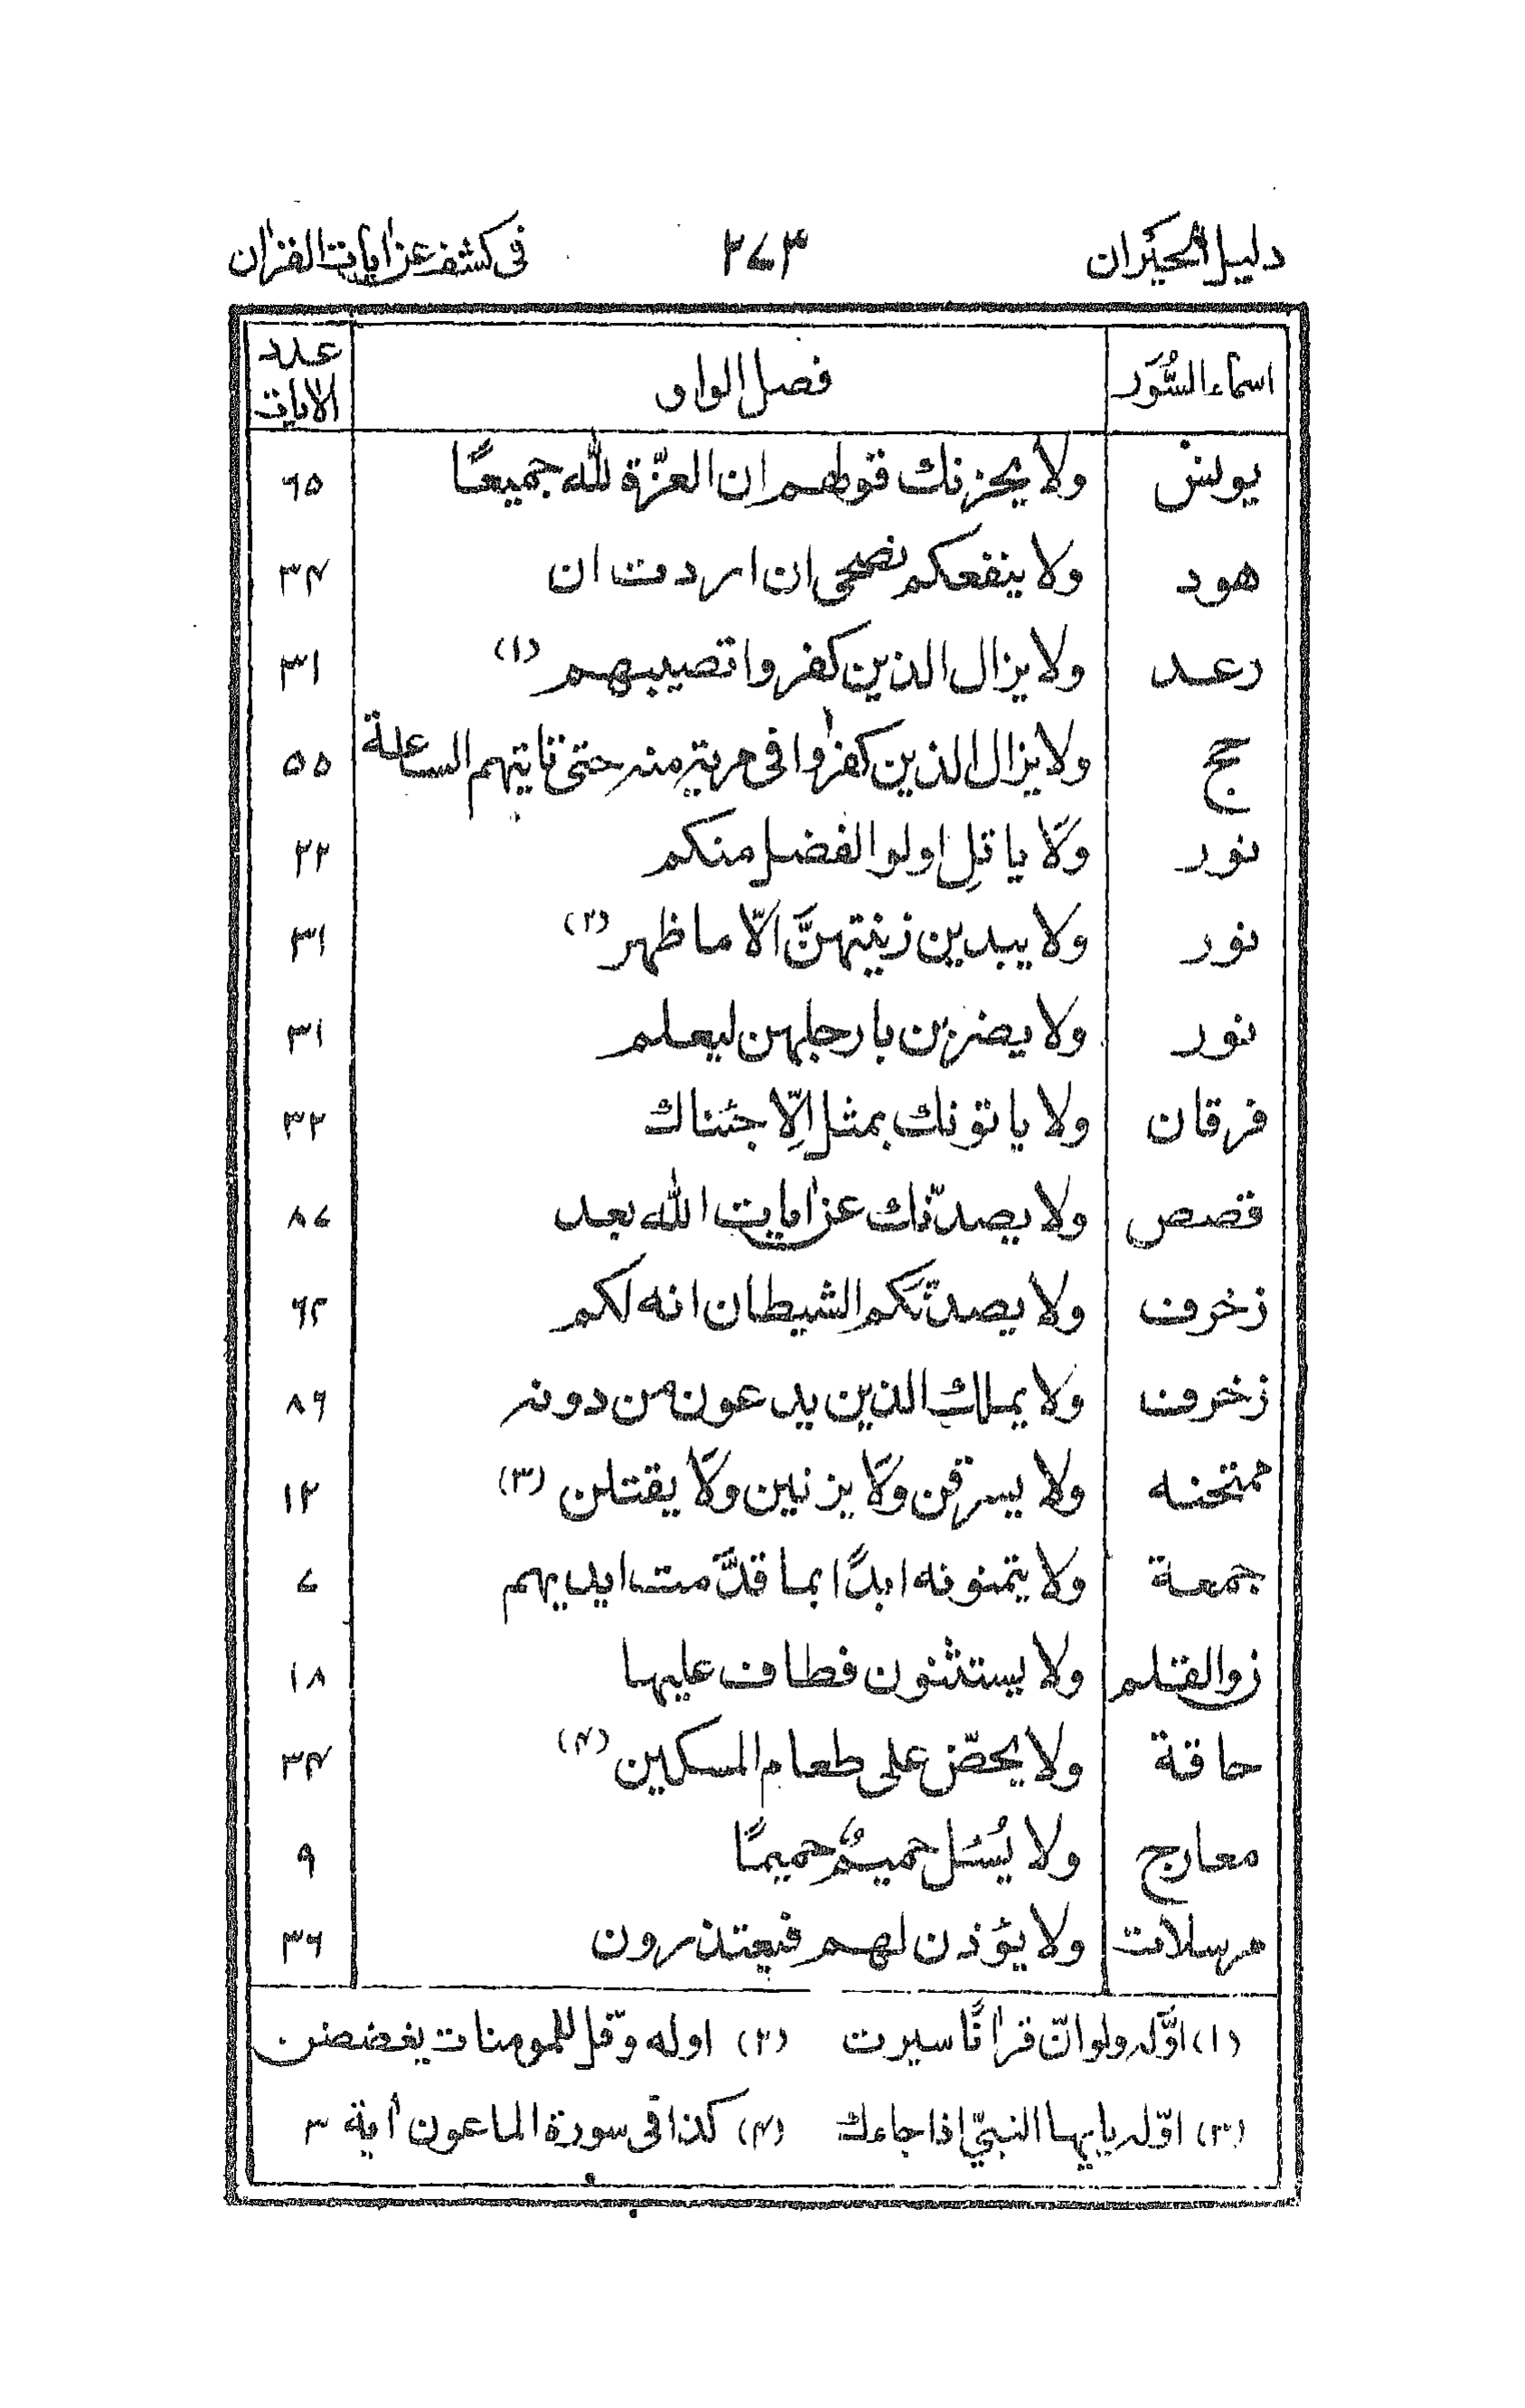 دليل الحيران ٢٧٣ في كشف عن ايات القران
اسماء السُّوَر فصل الواو عدد الايات
يونس ولا يحزنك قولهم ان العزّة لله جميعًا ٦٥
هود ولا ينفعكم نصحى ان اردت ان ٣٤
رعد ولا يزال الذين كفروا تصيبهم (١) ٣١
حج ولا يزال الذين كفروا فى مرية منه حتى تاتيهم الساعة ٥٥
نور ولا ياتلِ اولوا الفضل منكم ٢٢
نور ولا يبدين زينتهنَّ الّا ما ظهر (٢) ٣١
نور ولا يضربن بارجلهن ليعلم ٣١
فرقان ولا ياتونك بمثل اِلّا جئناك ٣٢
قصص ولا يصدّنك عن ايات الله بعد ٨٧
زخرف ولا يصدنّكم الشيطان انه لكم ٦٢
زخرف ولا يملك الذين يدعون من دونه ٨٦
ممتحنه ولا يسرقن ولا يزنين ولا يقتلن (٣) ١٢
جمعة ولا يتمنونه ابدًا بما قدَّمت ايديهم ٧
زوالقلم ولا يستثنون فطاف عليها ١٨
حاقة ولا يحضّ على طعام المسكين (٤) ٣٤
معارج ولا يُسئل حميمٌ حميمًا ٩
مرسلات ولا يؤذن لهم فيعتذرون ٣٦
(١) اوّله ولو انّ قرانًا سيرت (٢) اوله وقل للمومنات يغضضن
(٣) اوّله يايها النبيّ اذا جاءك (٤) كذا فى سورة الماعون اٰية ٣